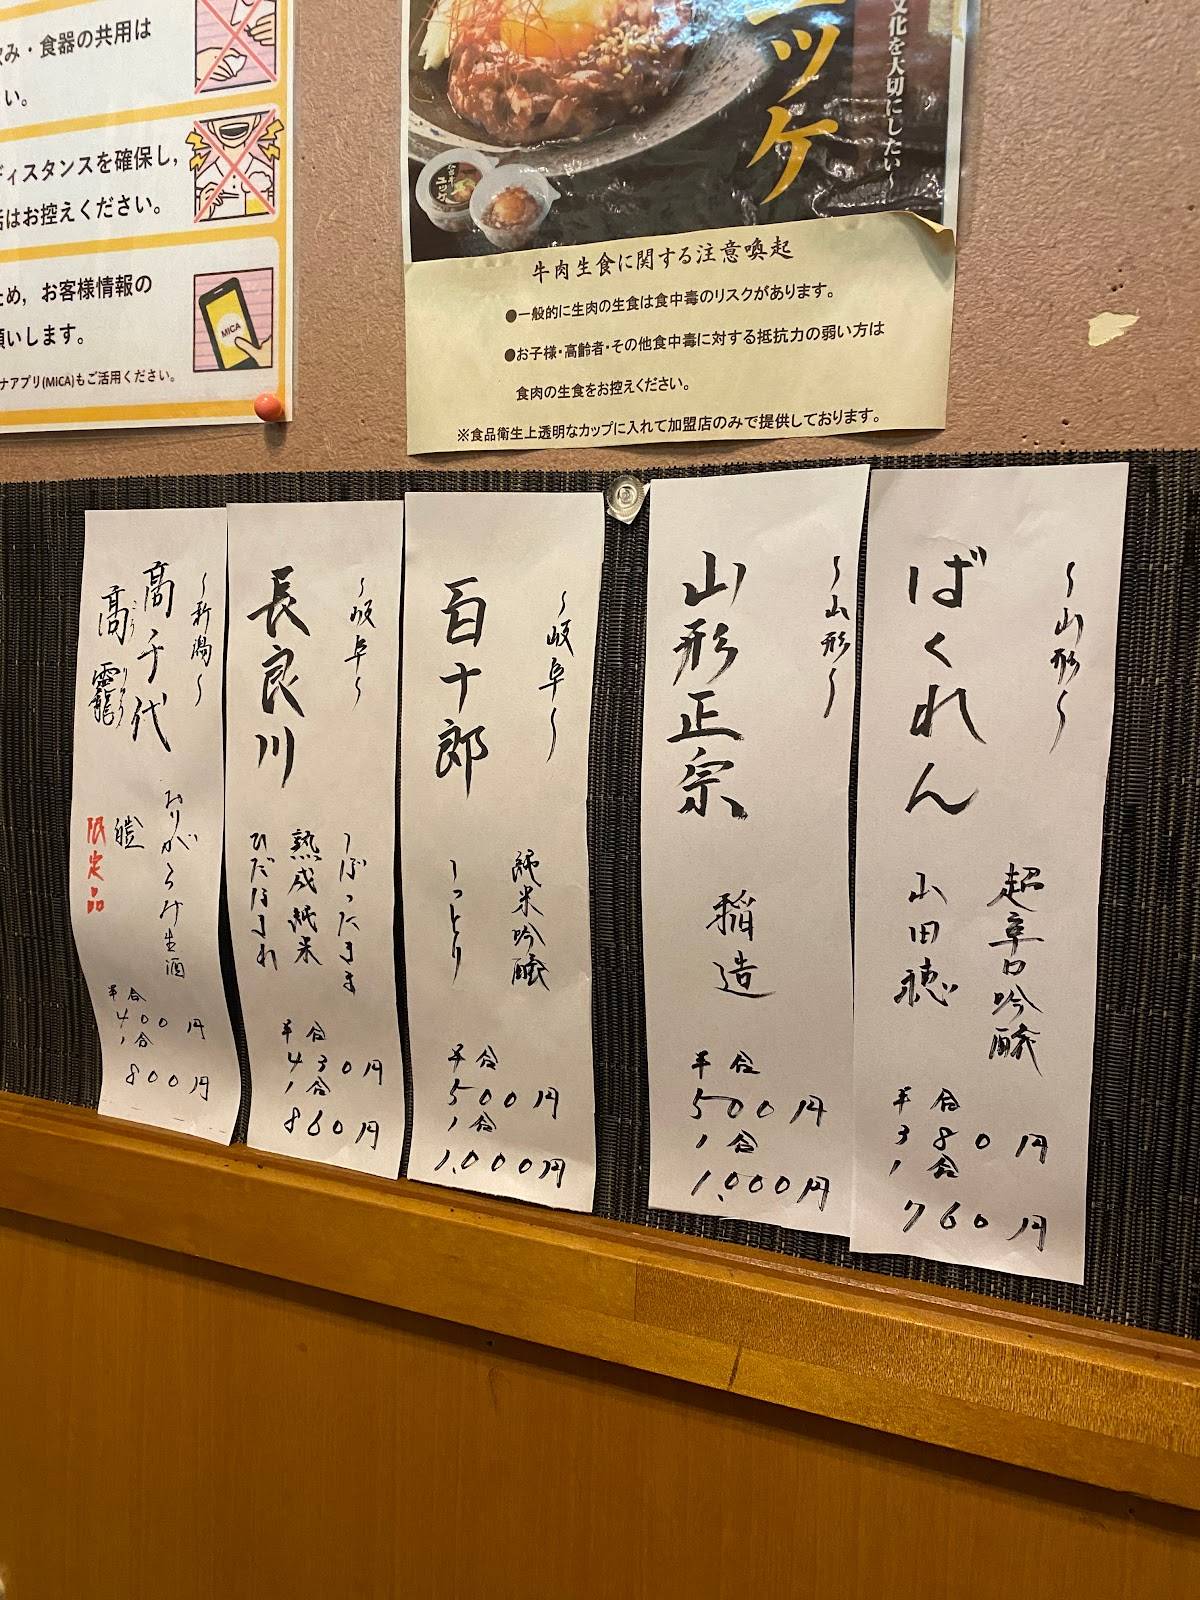 飲み・食器の共用は
い。
ディスタンスを確保し,
話はお控えください。
ため, お客様情報の
願いします。
ナアプリ(MICA)もご活用ください。
MICA
ユッケ
文化を大切にしたい
ユッケ
牛肉生食に関する注意喚起
●一般的に生肉の生食は食中毒のリスクがあります。
●お子様・高齢者・その他食中毒に対する抵抗力の弱い方は
食肉の生食をお控えください。
※食品衛生上透明なカップに入れて加盟店のみで提供しております。
〜山形〜
ばくれん
超辛口吟醸
山田穂
半合
380円
1合
760円
〜山形〜
山形正宗
稲造
半合
500円
1合
1,000円
〜岐阜〜
百十郎
純米吟醸
しっとり
半合
500円
1合
1,000円
〜岐阜〜
長良川
しぼったまま
熟成純米
ひだほまれ
半合
430円
1合
860円
〜新潟〜
高千代
高龗
こう りゅう
おりがらみ生酒
限定品
半合
400円
1合
800円